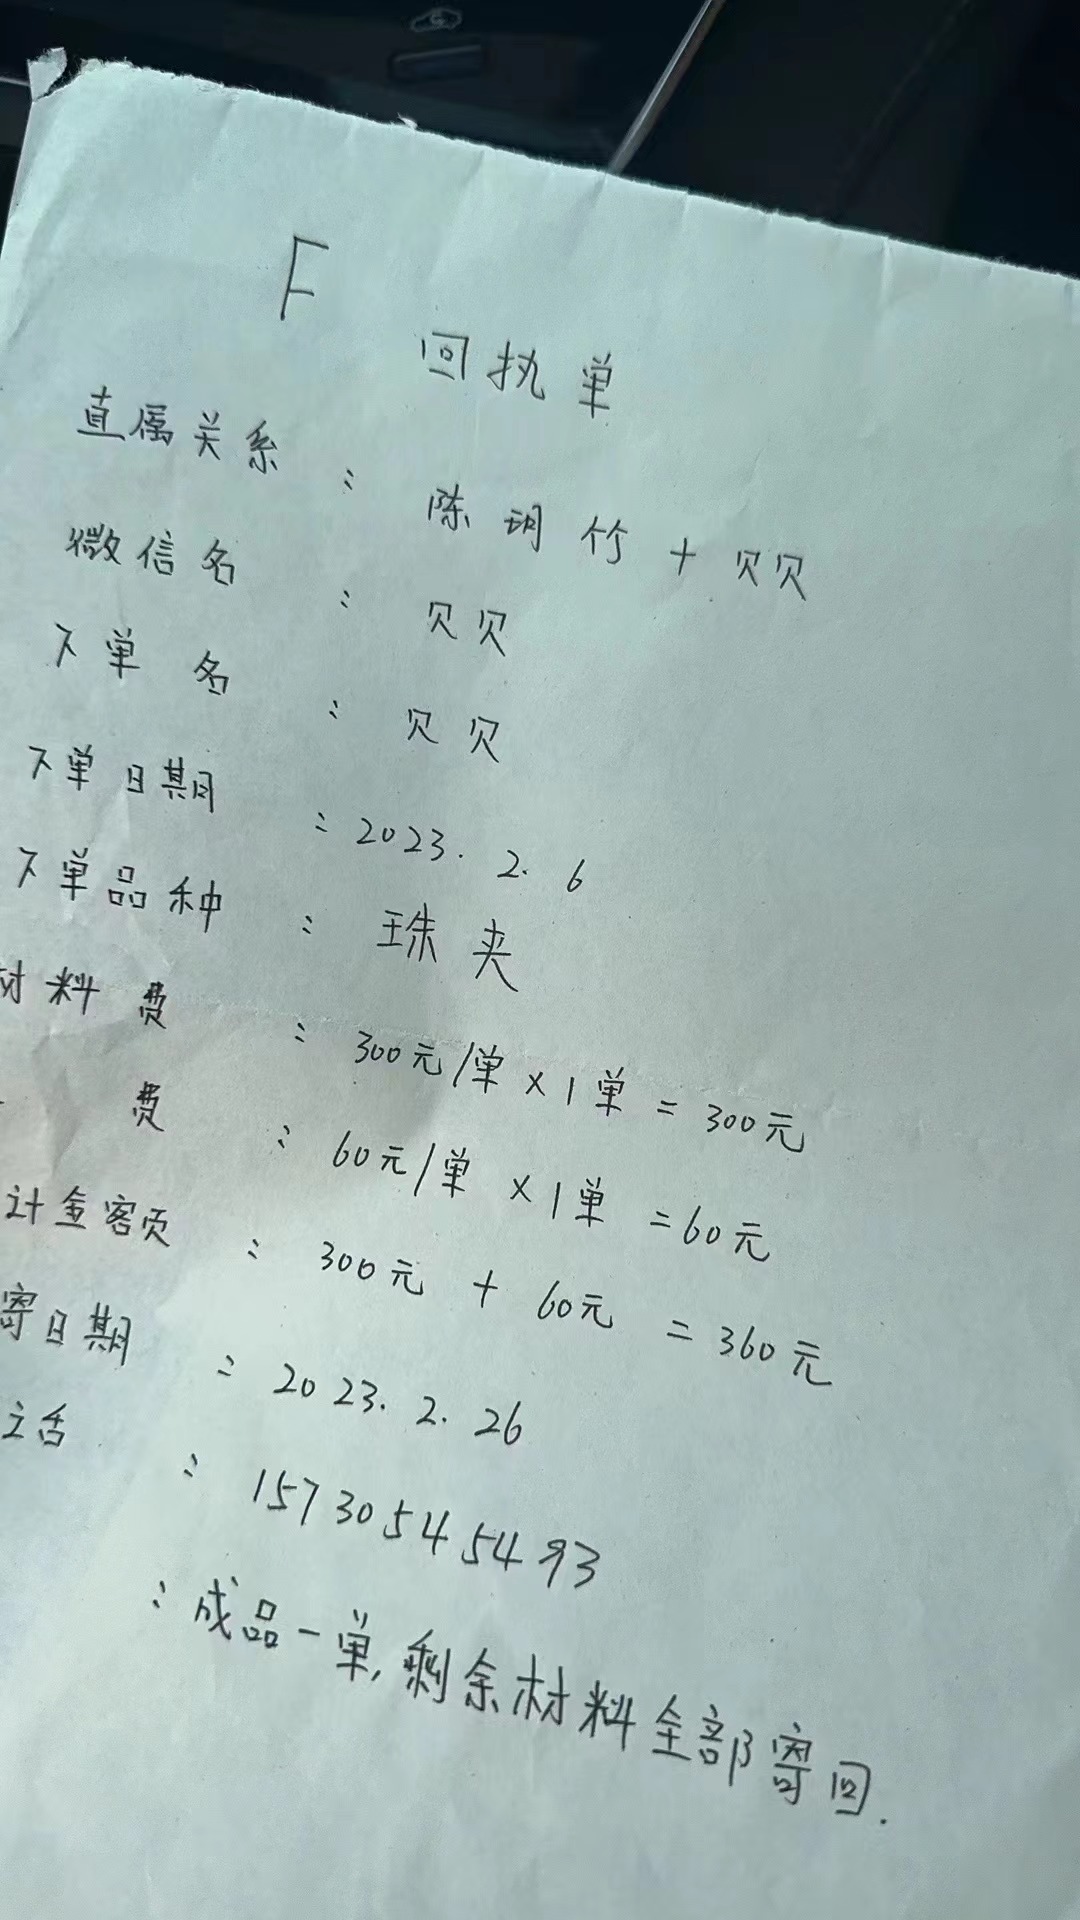 F
回执单
直属关系：陈玥竹+贝贝
微信名：贝贝
下单名：贝贝
下单日期：2023.2.6
下单品种：珠夹
材料费：300元/单×1单=300元
费：60元/单×1单=60元
计金额：300元+60元=360元
寄日期：2023.2.26
话：15730545493
：成品一单,剩余材料全部寄回.